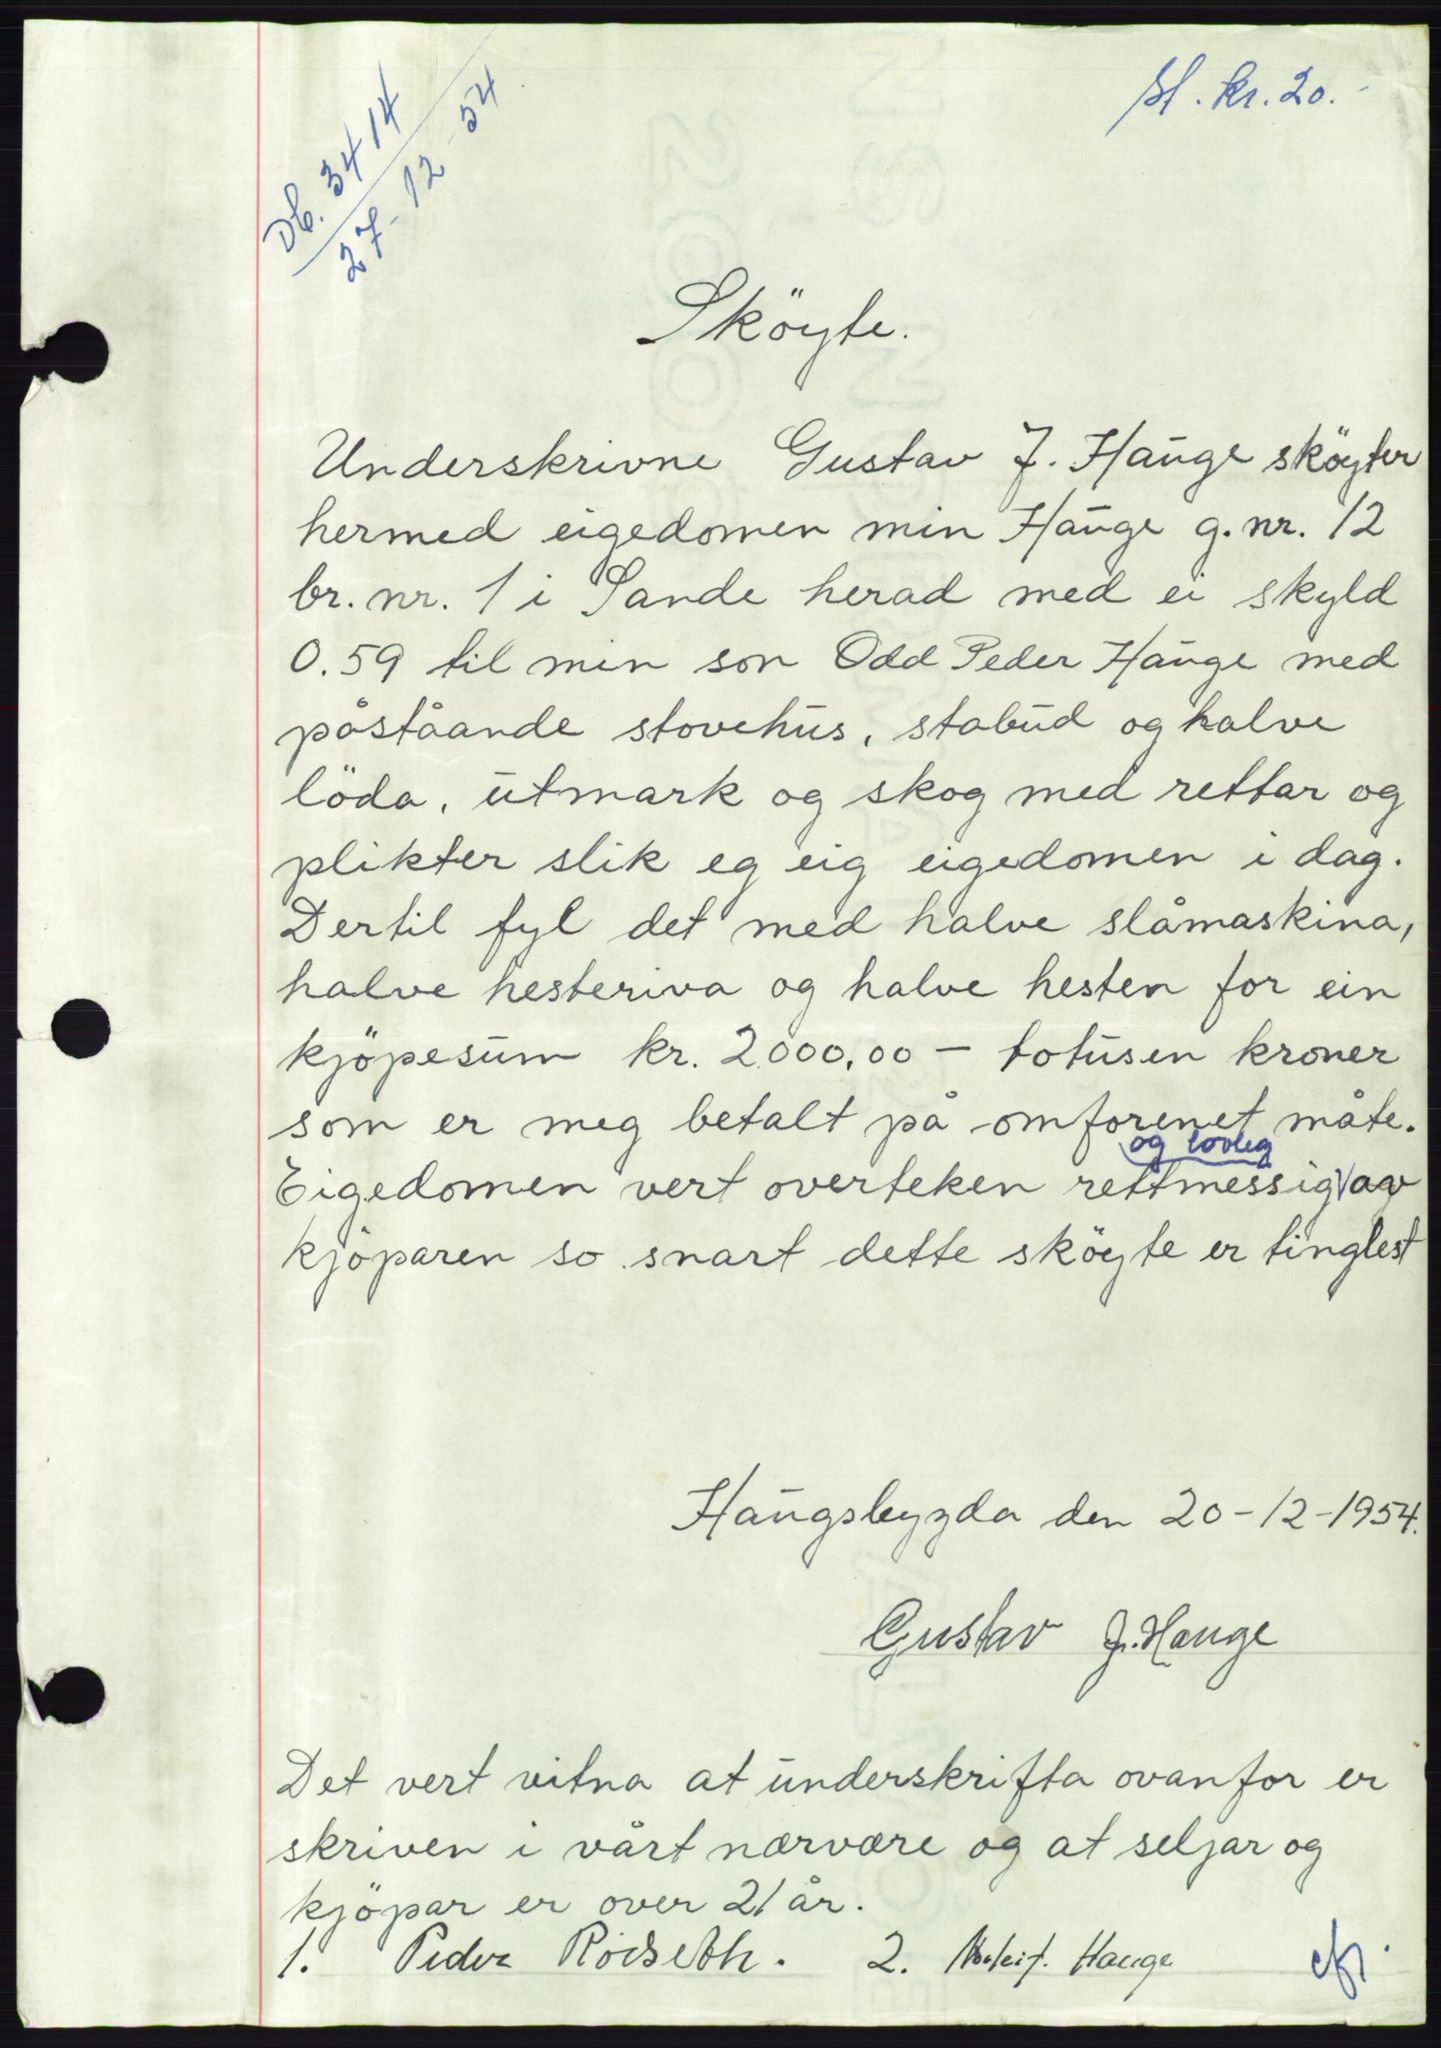 Db. 3414
27-12-54
St. kr. 20.-
Sköyte.
Underskrivne Gustav J. Hauge sköyter
hermed eigedomen min Hauge g. nr. 12
br. nr. 1 i Sande herad med ei skyld
0.59 til min son Odd Peder Hauge med
påståande stovehus, stabud og halve
löda, utmark og skog med rettar og
plikter slik eg eig eigedomen i dag.
Dertil fyl det med halve slåmaskina,
halve hesteriva og halve hesten for ein
kjöpesum kr. 2000,00 - totusen kroner
som er meg betalt på omforenet måte.
og lovleg
Eigedomen vert overteken rettmessig av
kjöparen so snart dette sköyte er tinglest
Haugsbygda den 20-12-1954.
Gustav J. Hauge
Det vert vitna at underskrifta ovanfor er
skriven i vårt nærvære og at seljar og
kjöpar er over 21 år.
1. Peder Rödseth. 2. Hauge